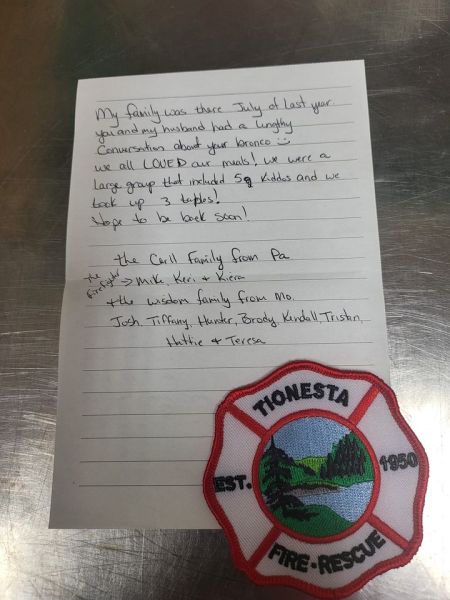 My family was there July of last year
you and my husband had a lengthy
Conversation about your bronco
we all LOVED our meals! we were a
large group that included 5 kiddos and we
took up 3 tables!
Hope to be back soon!
the Carll Family from Pa
the firefighter → Mike, Keri & Kiera
& the wisdom family from Mo.
Josh, Tiffany, Hunter, Brody, Kendall, Tristan,
Hattie & Teresa
TIONESTA
EST. 1950
FIRE-RESCUE